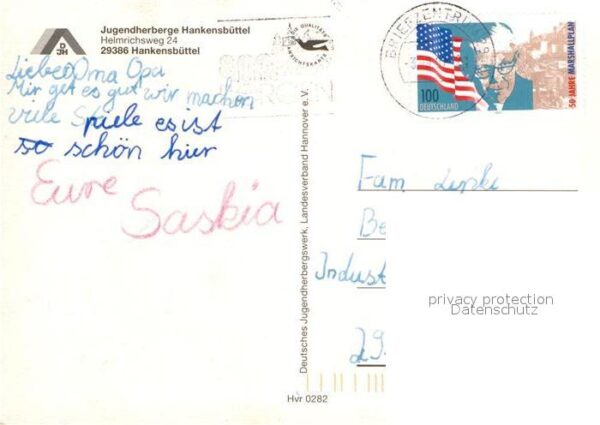 Jugendherberge Hankensbüttel
Helmrichsweg 24
29386 Hankensbüttel
DJH
Lieber Oma Opa
Mir get es gut wir machen
viele Spiele es ist
so schön hier
Eure
Saskia
Deutsches Jugendherbergswerk, Landesverband Hannover e.V.
Hvr 0282
BRIEFZENTRUM
100
DEUTSCHLAND
50 JAHRE MARSHALLPLAN
Fam
Be
Indust
29
privacy protection
Datenschutz